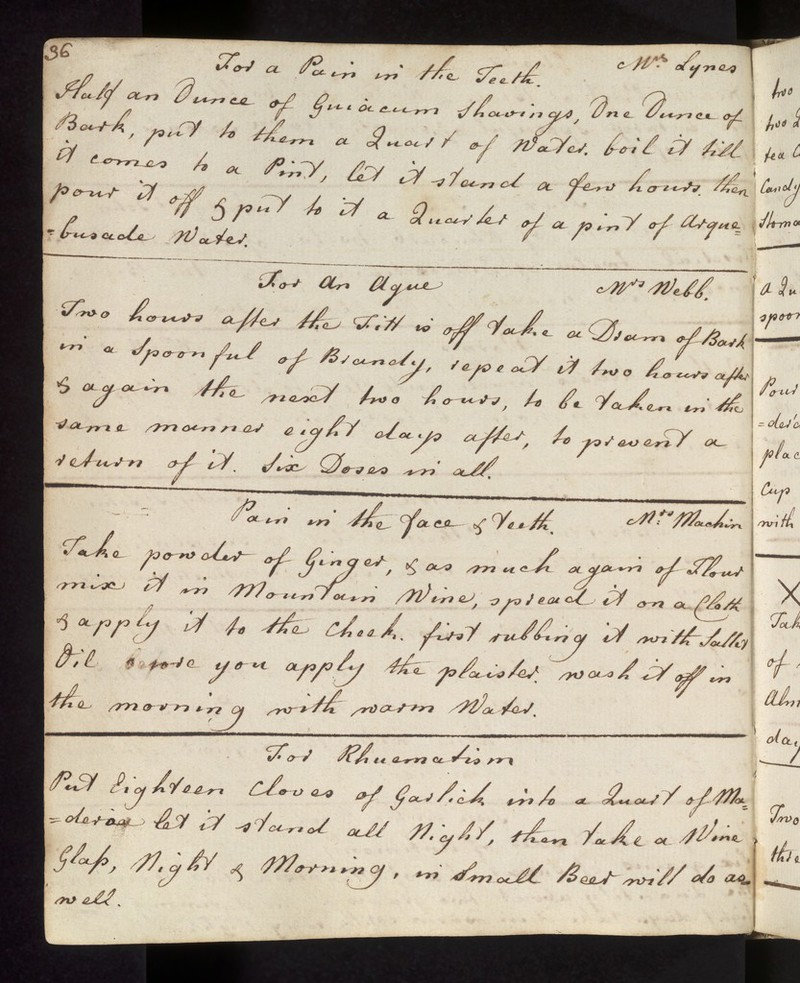 36
For a Pain in the Teeth. Mrs Lynes
Half an Ounce of Guiacum Shavings, One Ounce of
Bark, put to them a Quart of Water. boil it till
it comes to a Pint, let it stand a few hours. then
pour it off & put to it a Quarter of a pint of Arque=
=busade Water.
For An Ague Mrs Webb.
Two hours after the Fitt is off take a Dram of Bark
in a Spoonful of Brandy, repeat it two hours after
& again the next two hours, to be taken in the
same manner eight days after, to prevent a
return of it. Six Doses in all.
Pain in the face & Teeth. Mrs Machin
Take powder of Ginger, & as much again of Flour
mix it in Mountain Wine, spread it on a Cloth
& apply it to the Cheek. first rubbing it with Sallit
Oil before you apply the plaister. wash it off in
the morning with warm Water.
For Rhuematism
Put Eighteen Cloves of Garlick into a Quart of Ma=
=deroa let it stand all Night, then take a Wine
Glass, Night & Morning, in Small Beer will do as
well.
two
two
tea
Candy
Stoma
a Qu
spoon
Pour
=der'd
plac
Cup
with
X
Tak
of
Alm
day
Two
thre